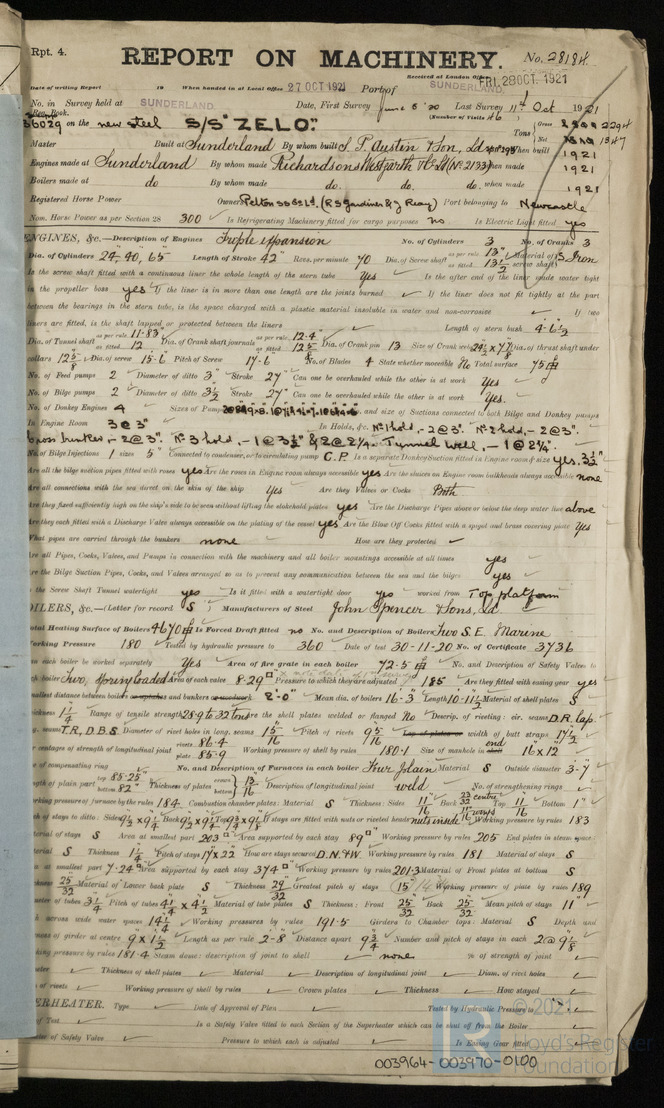 Rpt. 4.
REPORT ON MACHINERY.
No. 28184
Date of writing Report 19 When handed in at Local Office 27 OCT 1921 Port of SUNDERLAND. Received at London Office FRI. 28 OCT. 1921
No. in Survey held at SUNDERLAND Date, First Survey June 5 '20 Last Survey 11th Oct 1921
Reg. Book. (Number of Visits 46)
36029 on the new steel S/S "ZELO". Tons Gross 2294 Net 1347
Master Built at Sunderland By whom built S. P. Austin & Son, Ld When built 1921
Engines made at Sunderland By whom made Richardsons Westgarth & Co Ld (No 2133) when made 1921
Boilers made at do By whom made do. do. when made 1921
Registered Horse Power Owners Pelton SS Co Ld. (R S Gardiner & J Reay) Port belonging to Newcastle
Nom. Horse Power as per Section 28 300 Is Refrigerating Machinery fitted for cargo purposes no Is Electric Light fitted yes
ENGINES, &c.—Description of Engines Triple expansion No. of Cylinders 3 No. of Cranks 3
Dia. of Cylinders 24", 40, 65" Length of Stroke 42" Revs. per minute 70 Dia. of Screw shaft as per rule 13" as fitted 13½" Material of screw shaft S. Iron
Is the screw shaft fitted with a continuous liner the whole length of the stern tube Yes Is the after end of the liner made water tight
in the propeller boss yes If the liner is in more than one length are the joints burned ✓ If the liner does not fit tightly at the part
between the bearings in the stern tube, is the space charged with a plastic material insoluble in water and non-corrosive ✓ If two
liners are fitted, is the shaft lapped or protected between the liners ✓ Length of stern bush 4-6½
Dia. of Tunnel shaft as per rule 11.83" as fitted 12 Dia. of Crank shaft journals as per rule 12.4" as fitted 12⅝ Dia. of Crank pin 13 Size of Crank webs 24½ x 7⅞ Dia. of thrust shaft under
collars 12⅝ Dia. of screw 15-6" Pitch of Screw 17-6" No. of Blades 4 State whether moveable No Total surface 75
No. of Feed pumps 2 Diameter of ditto 3" Stroke 27" Can one be overhauled while the other is at work Yes
No. of Bilge pumps 2 Diameter of ditto 3½ Stroke 27" Can one be overhauled while the other is at work Yes.
No. of Donkey Engines 4 Sizes of Pumps and size of Suctions connected to both Bilge and Donkey pumps
In Engine Room 3 @ 3" In Holds, &c. No 1 hold, - 2 @ 3". No 2 hold, - 2 @ 3".
Cross bunker, - 2 @ 3". No 3 hold, - 1 @ 3½" & 2 @ 2¼. Tunnel Well, - 1 @ 2½".
No. of Bilge Injections 1 sizes 5" Connected to condenser, or to circulating pump C.P. Is a separate Donkey Suction fitted in Engine room & size yes, 3½"
Are all the bilge suction pipes fitted with roses yes Are the roses in Engine room always accessible yes Are the sluices on Engine room bulkheads always accessible none
Are all connections with the sea direct on the skin of the ship Yes Are they Valves or Cocks Both
Are they fixed sufficiently high on the ship's side to be seen without lifting the stokehold plates yes Are the Discharge Pipes above or below the deep water line above
Are they each fitted with a Discharge Valve always accessible on the plating of the vessel yes Are the Blow Off Cocks fitted with a spigot and brass covering plate Yes
What pipes are carried through the bunkers none How are they protected ✓
Are all Pipes, Cocks, Valves, and Pumps in connection with the machinery and all boiler mountings accessible at all times yes
Are the Bilge Suction Pipes, Cocks, and Valves arranged so as to prevent any communication between the sea and the bilges yes
Is the Screw Shaft Tunnel watertight yes Is it fitted with a watertight door yes worked from Top platform
BOILERS, &c.—(Letter for record S) Manufacturers of Steel John Spencer & Sons, Ld.
Total Heating Surface of Boilers 4670 Is Forced Draft fitted no No. and Description of Boilers Two S.E. Marine
Working Pressure 180 Tested by hydraulic pressure to 360 Date of test 30-11-20 No. of Certificate 3736
Can each boiler be worked separately Yes Area of fire grate in each boiler 72.5 No. and Description of Safety Valves to
each boiler Two, spring loaded Area of each valve 8.29 Pressure to which they are adjusted 185 Are they fitted with easing gear yes
Smallest distance between boilers or uptakes and bunkers or woodwork 2'-0" Mean dia. of boilers 16'-3" Length 10-11½ Material of shell plates S
Thickness 1¼ Range of tensile strength 28.9 to 32 tons Are the shell plates welded or flanged No Descrip. of riveting: cir. seams D.R. lap.
long. seams T.R., D.B.S Diameter of rivet holes in long. seams 15/16 Pitch of rivets 9 5/16 Lap of plates or width of butt straps 17½
Percentages of strength of longitudinal joint rivets 86.4 plate 85.9 Working pressure of shell by rules 180.1 Size of manhole in end 16" x 12
Size of compensating ring No. and Description of Furnaces in each boiler Four Plain Material S Outside diameter 3-7
Length of plain part top 85.25" bottom 82" Thickness of plates crown bottom 13/16 Description of longitudinal joint weld No. of strengthening rings
Working pressure of furnace by the rules 184 Combustion chamber plates: Material S Thickness: Sides 11/16 Back 23/32 centre 11/16 wings Top 11/16 Bottom 1"
Pitch of stays to ditto: Sides 9½ x 9¼ Back 9½ x 9½ Top 9¾ x 9⅛ If stays are fitted with nuts or riveted heads nuts inside Working pressure by rules 183
Material of stays S Area at smallest part 2.03 Area supported by each stay 89 Working pressure by rules 205 End plates in steam space
Material S Thickness 1¼ Pitch of stays 17 x 22 How are stays secured D.N.&W. Working pressure by rules 181 Material of stays S
Area at smallest part 7.24 Area supported by each stay 374 Working pressure by rules 201.3 Material of Front plates at bottom S
Thickness 25/32 Material of Lower back plate S Thickness 29/32 Greatest pitch of stays 15 Working pressure of plate by rules 189
Diameter of tubes 3¼ Pitch of tubes 4½ x 4½ Material of tube plates S Thickness: Front 25/32 Back 25/32 Mean pitch of stays 11"
Pitch across wide water spaces 14½ Working pressures by rules 191.5 Girders to Chamber tops: Material S Depth and
thickness of girder at centre 9 x 1½ Length as per rule 2-8 Distance apart 9¾ Number and pitch of stays in each 2 @ 9⅛
Working pressure by rules 181.4 Steam dome: description of joint to shell none % of strength of joint
Diameter Thickness of shell plates Material Description of longitudinal joint Diam. of rivet holes
Pitch of rivets Working pressure of shell by rules Crown plates Thickness How stayed
SUPERHEATER. Type Date of Approval of Plan Tested by Hydraulic Pressure to
Date of Test Is a Safety Valve fitted to each Section of the Superheater which can be shut off from the Boiler
Diameter of Safety Valve Pressure to which each is adjusted Is Easing Gear fitted
© 2021
Lloyd's Register
Foundation
003964-003970-0100